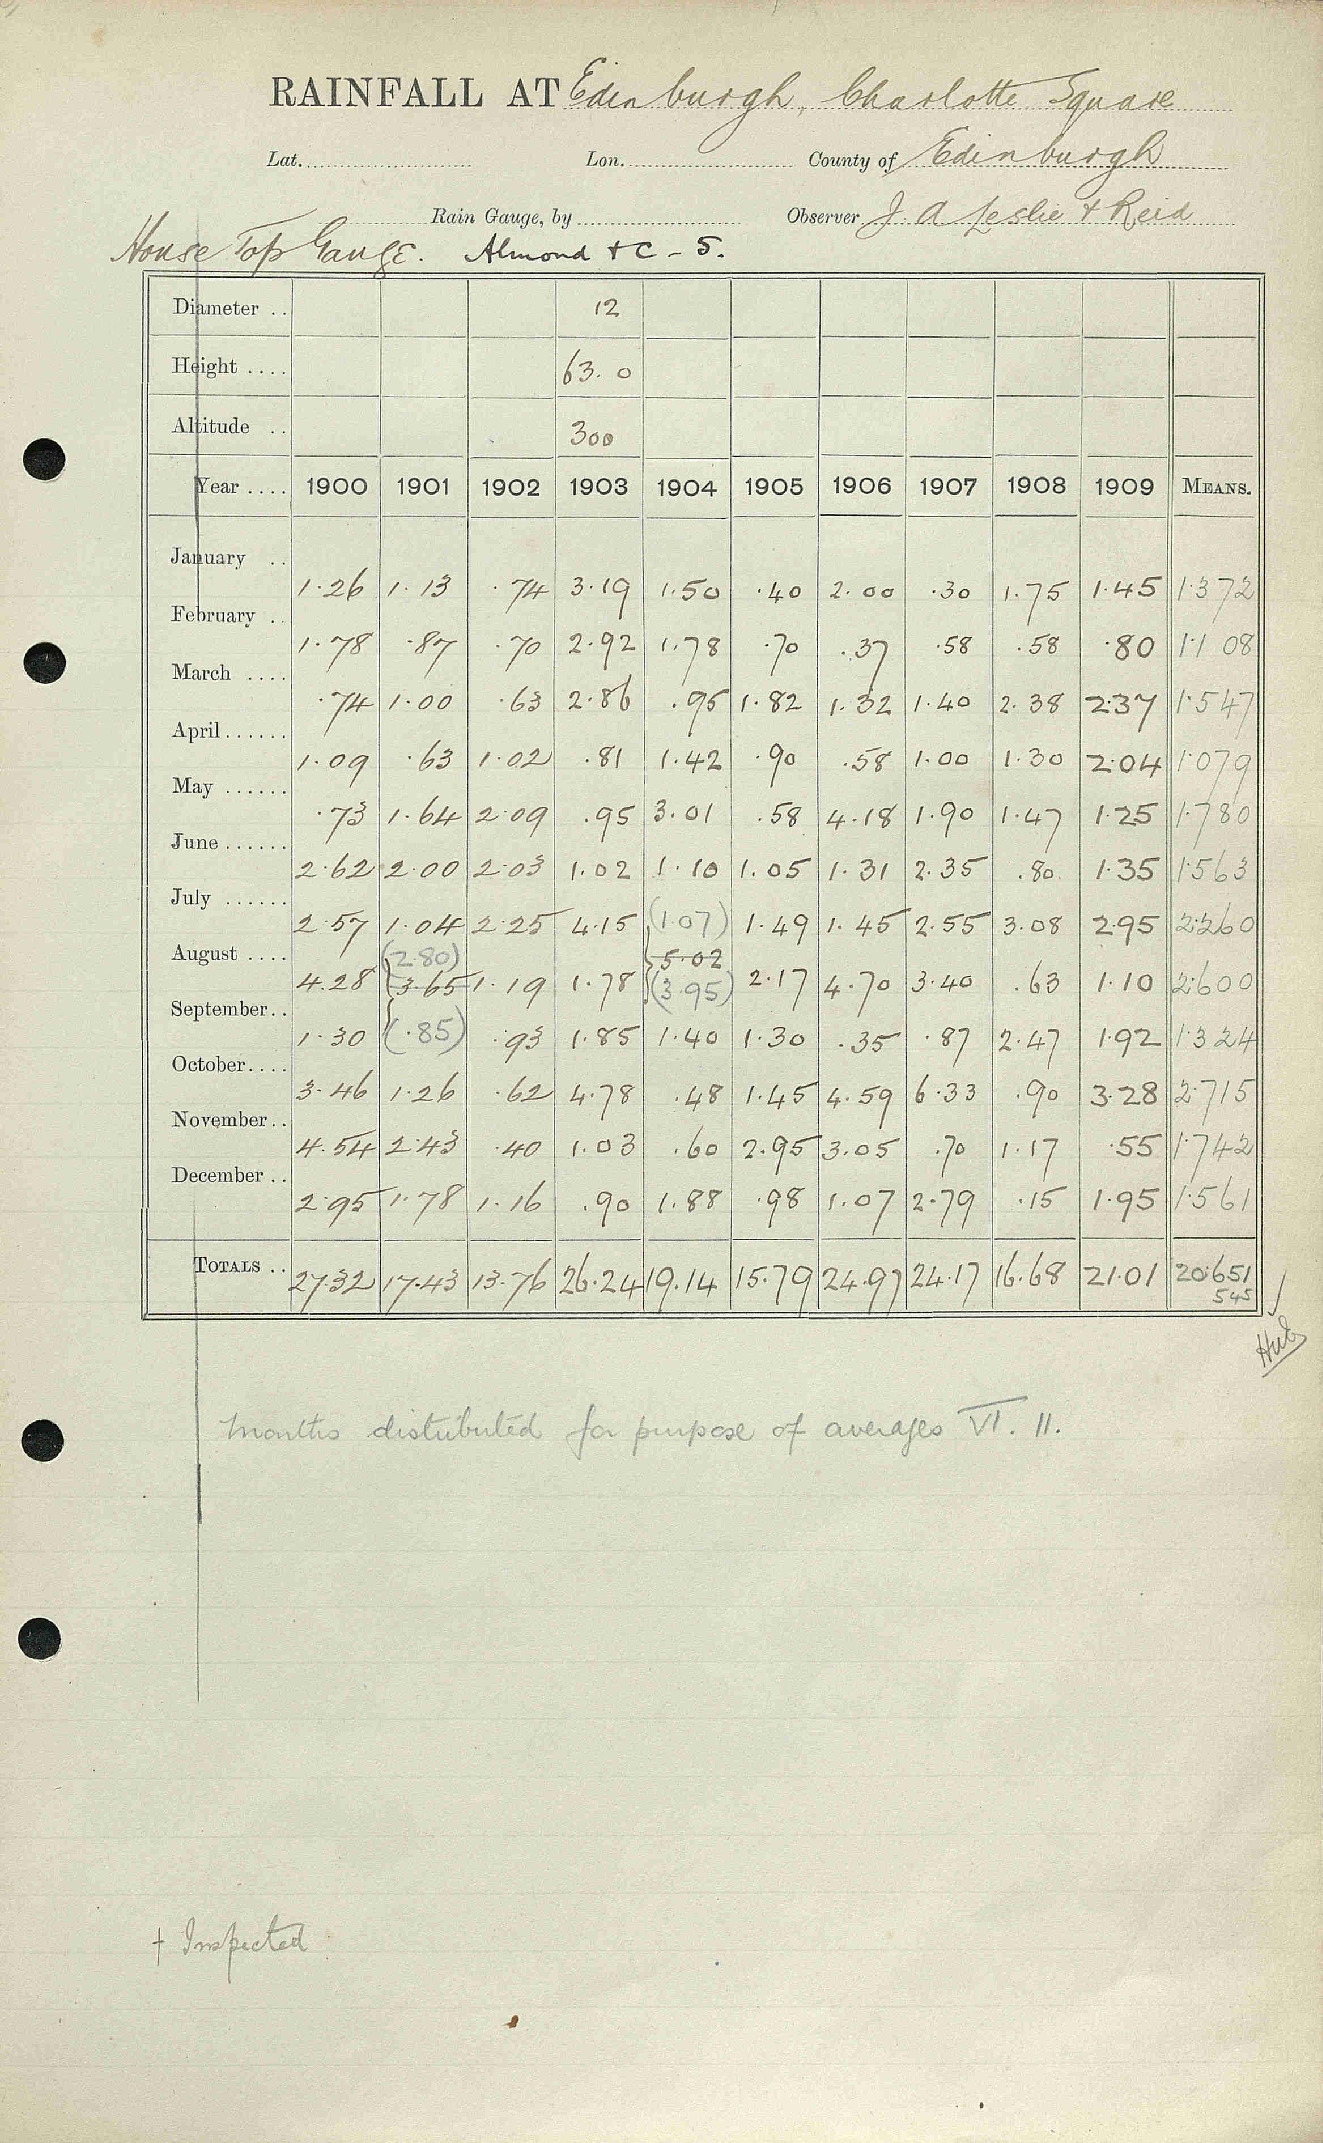 RAINFALL AT Edinburgh, Charlotte Square
Lat. Lon. County of Edinburgh
Rain Gauge, by Observer J. A Leslie & Reid
House Top Gauge. Almond & C - 5.
Diameter .. 12
Height .... 63.0
Altitude .. 300
Year .... 1900 1901 1902 1903 1904 1905 1906 1907 1908 1909 MEANS.
January .. 1.26 1.13 .74 3.19 1.50 .40 2.00 .30 1.75 1.45 1.372
February .. 1.78 .87 .70 2.92 1.78 .70 .37 .58 .58 .80 1.108
March .... .74 1.00 .63 2.86 .95 1.82 1.32 1.40 2.38 2.37 1.547
April ...... 1.09 .63 1.02 .81 1.42 .90 .58 1.00 1.30 2.04 1.079
May ...... .73 1.64 2.09 .95 3.01 .58 4.18 1.90 1.47 1.25 1.780
June ...... 2.62 2.00 2.03 1.02 1.10 1.05 1.31 2.35 .80 1.35 1.563
July ...... 2.57 1.04 2.25 4.15 (1.07) 1.49 1.45 2.55 3.08 2.95 2.260
(2.80) 5.02
August .... 4.28 3.65 1.19 1.78 (3.95) 2.17 4.70 3.40 .63 1.10 2.600
September .. 1.30 (.85) .93 1.85 1.40 1.30 .35 .87 2.47 1.92 1.324
October .... 3.46 1.26 .62 4.78 .48 1.45 4.59 6.33 .90 3.28 2.715
November .. 4.54 2.43 .40 1.03 .60 2.95 3.05 .70 1.17 .55 1.742
December .. 2.95 1.78 1.16 .90 1.88 .98 1.07 2.79 .15 1.95 1.561
TOTALS .. 27.32 17.43 13.76 26.24 19.14 15.79 24.97 24.17 16.68 21.01 20.651
545
Months distributed for purpose of averages VI. 11.
† Inspected